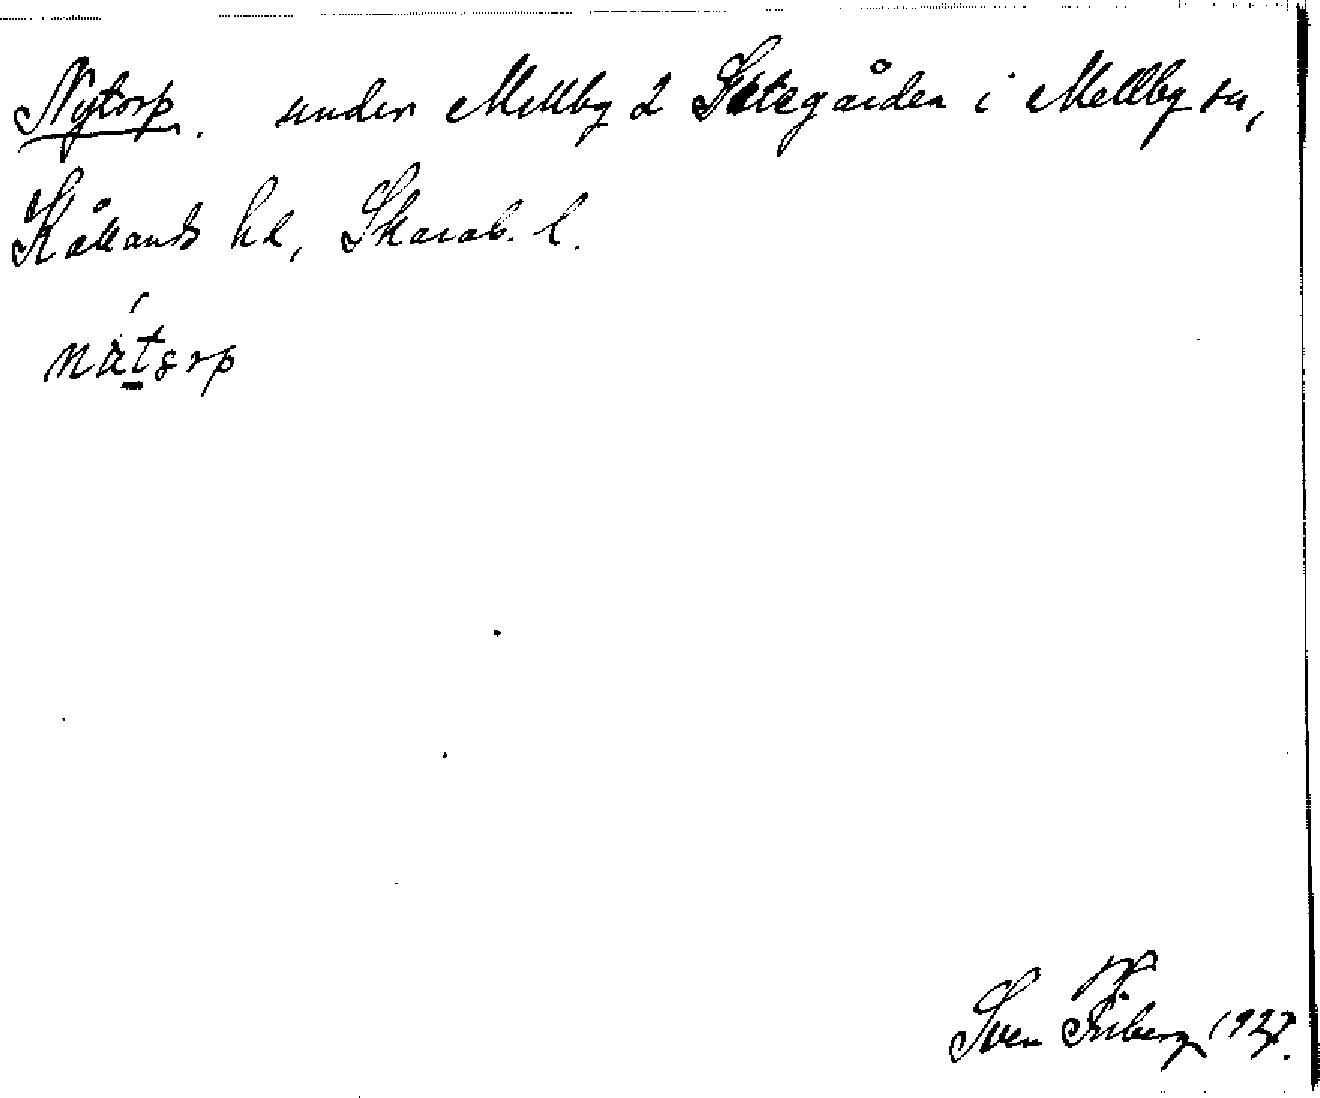 Nytorp. under Mellby 2 Sktegården i Mellby sn,
Kållands hd, Skarab. l.
nåtorp
Sven Friberg 1927.